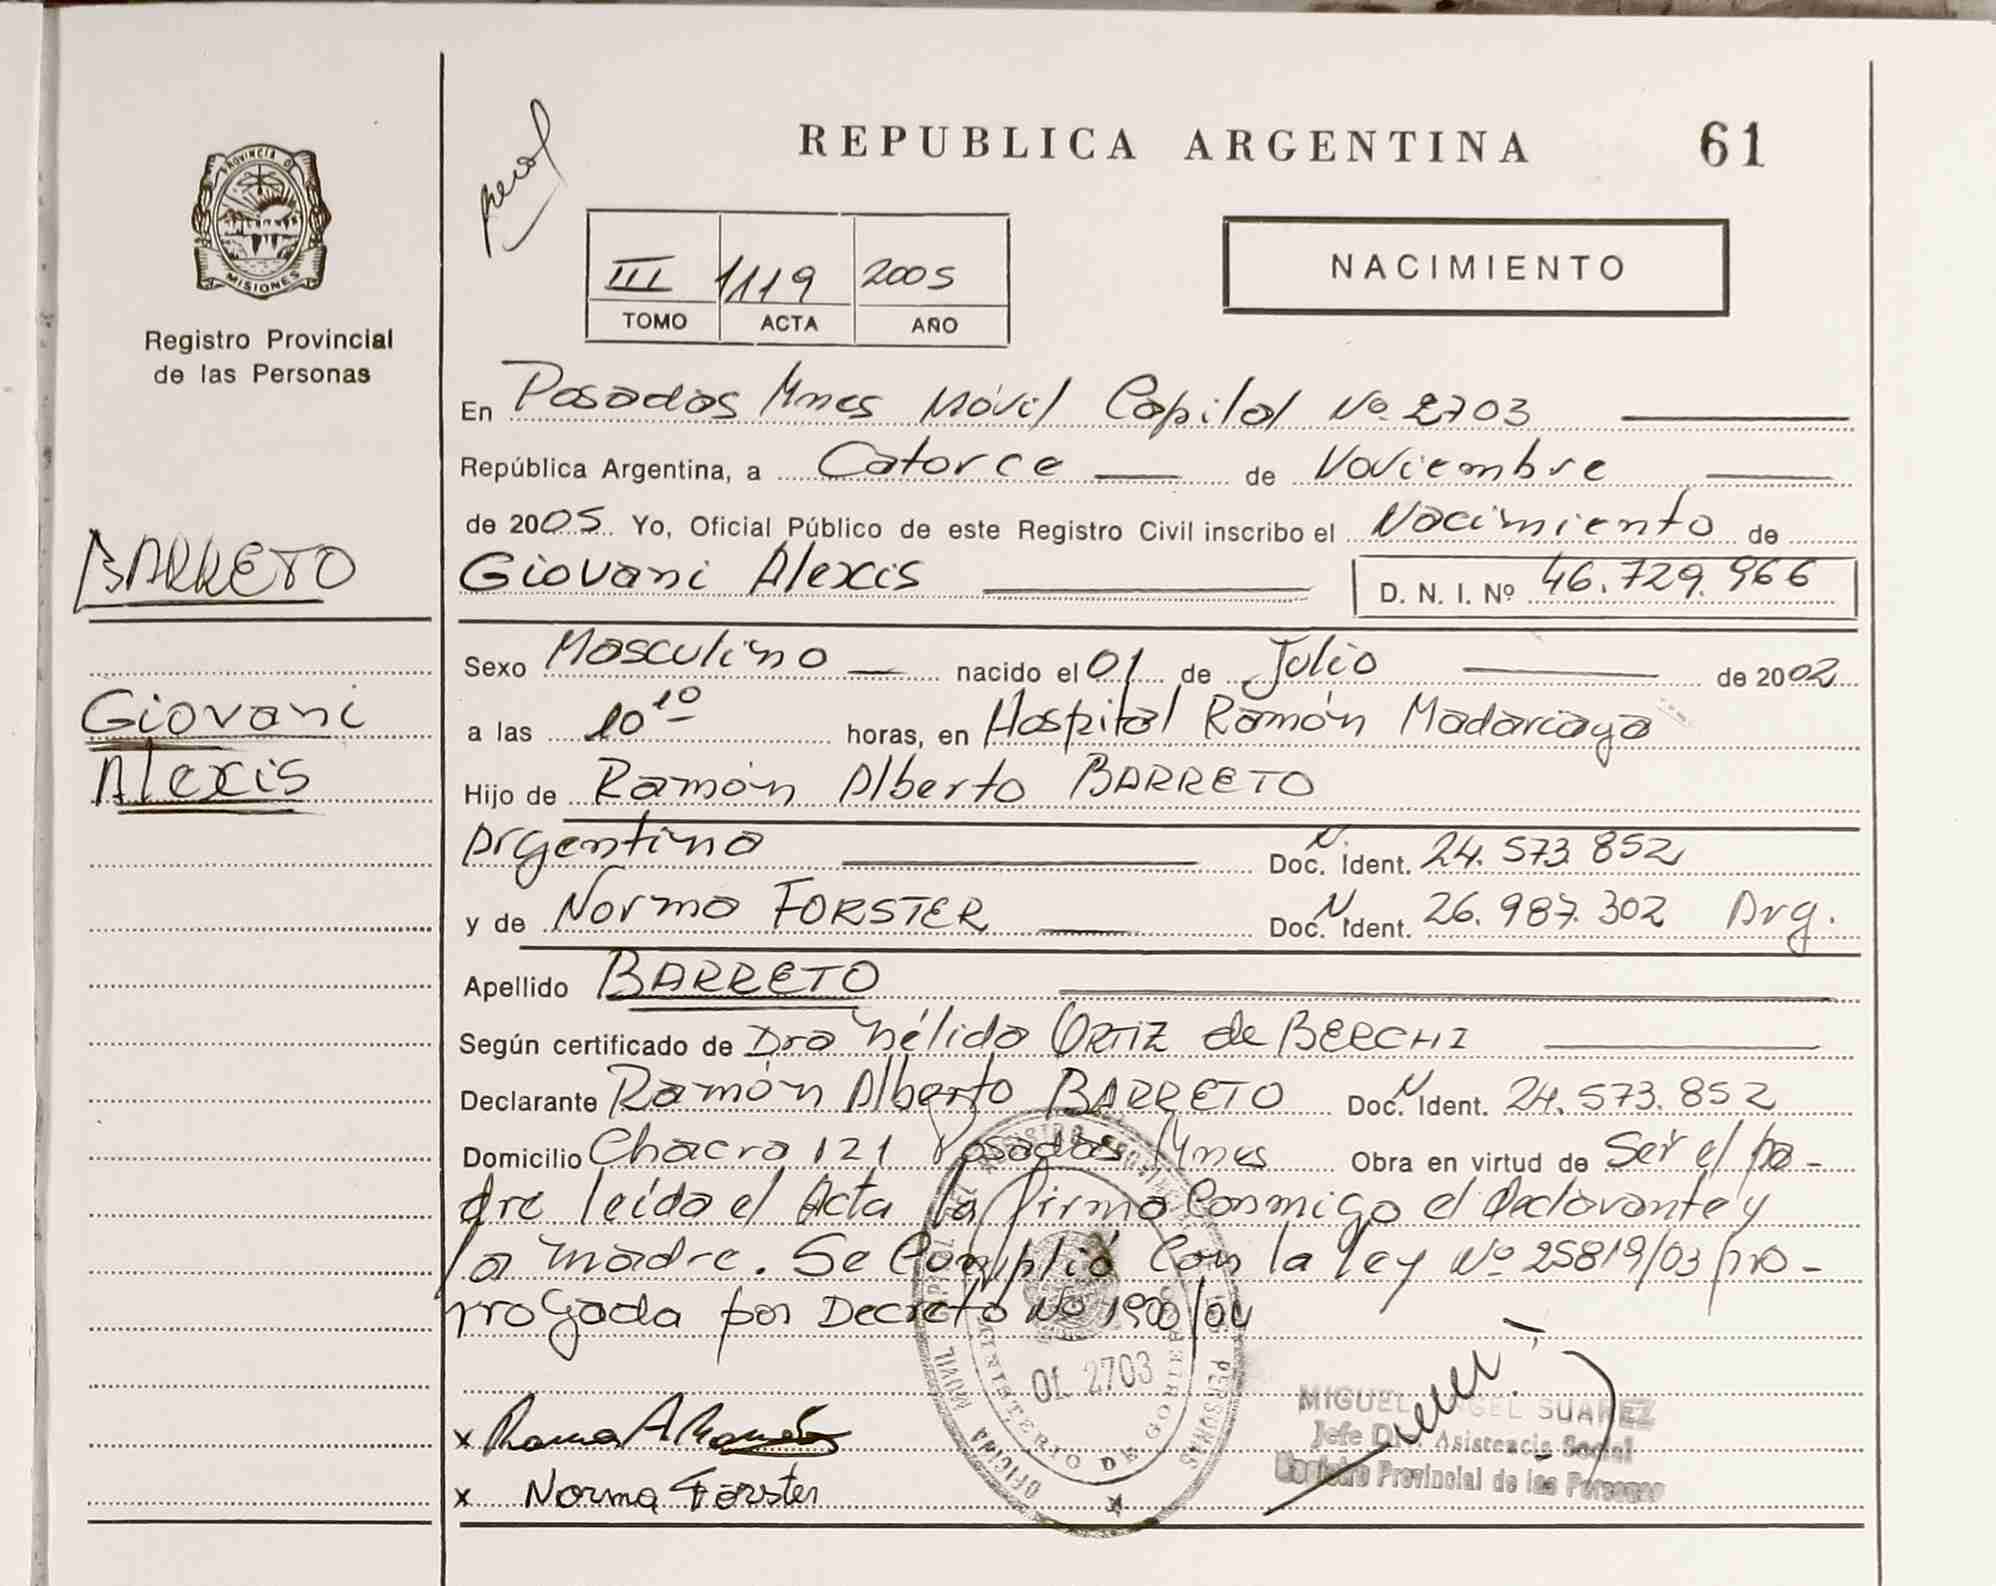 REPUBLICA ARGENTINA 61
PROVINCIA D
MISIONES
Registro Provincial
de las Personas
III 1119 2005
TOMO ACTA AÑO
NACIMIENTO
En Posadas Mnes Móvil Capital Nº 2703
República Argentina, a Catorce de Noviembre
de 2005 Yo, Oficial Público de este Registro Civil inscribo el Nacimiento de
BARRETO
Giovani Alexis D. N. I. Nº 46.729.966
Sexo Masculino nacido el 01 de Julio de 2002
Giovani
a las 10 10 horas, en Hospital Ramón Madariaga
Alexis
Hijo de Ramón Alberto BARRETO
Argentino Doc. N. Ident. 24.573.852
y de Norma FORSTER Doc. N Ident. 26.987.302 Arg.
Apellido BARRETO
Según certificado de Dra Nélida ORTIZ de BERCHI
Declarante Ramón Alberto BARRETO Doc. N Ident. 24.573.852
Domicilio Chacra 121 Posadas Mnes Obra en virtud de Ser el pa-
dre leída el Acta la firma Conmigo el declarante y
la madre. Se Complió Con la ley Nº 25819/03 pro-
rrogada por Decreto Nº 1900/04
OF. 2703
MINISTERIO DE GOBIERNO
OFICINA MOVIL
MIGUEL ANGEL SUAREZ
Jefe Asistencia Social
Registro Provincial de las Personas
x
x Norma Forster